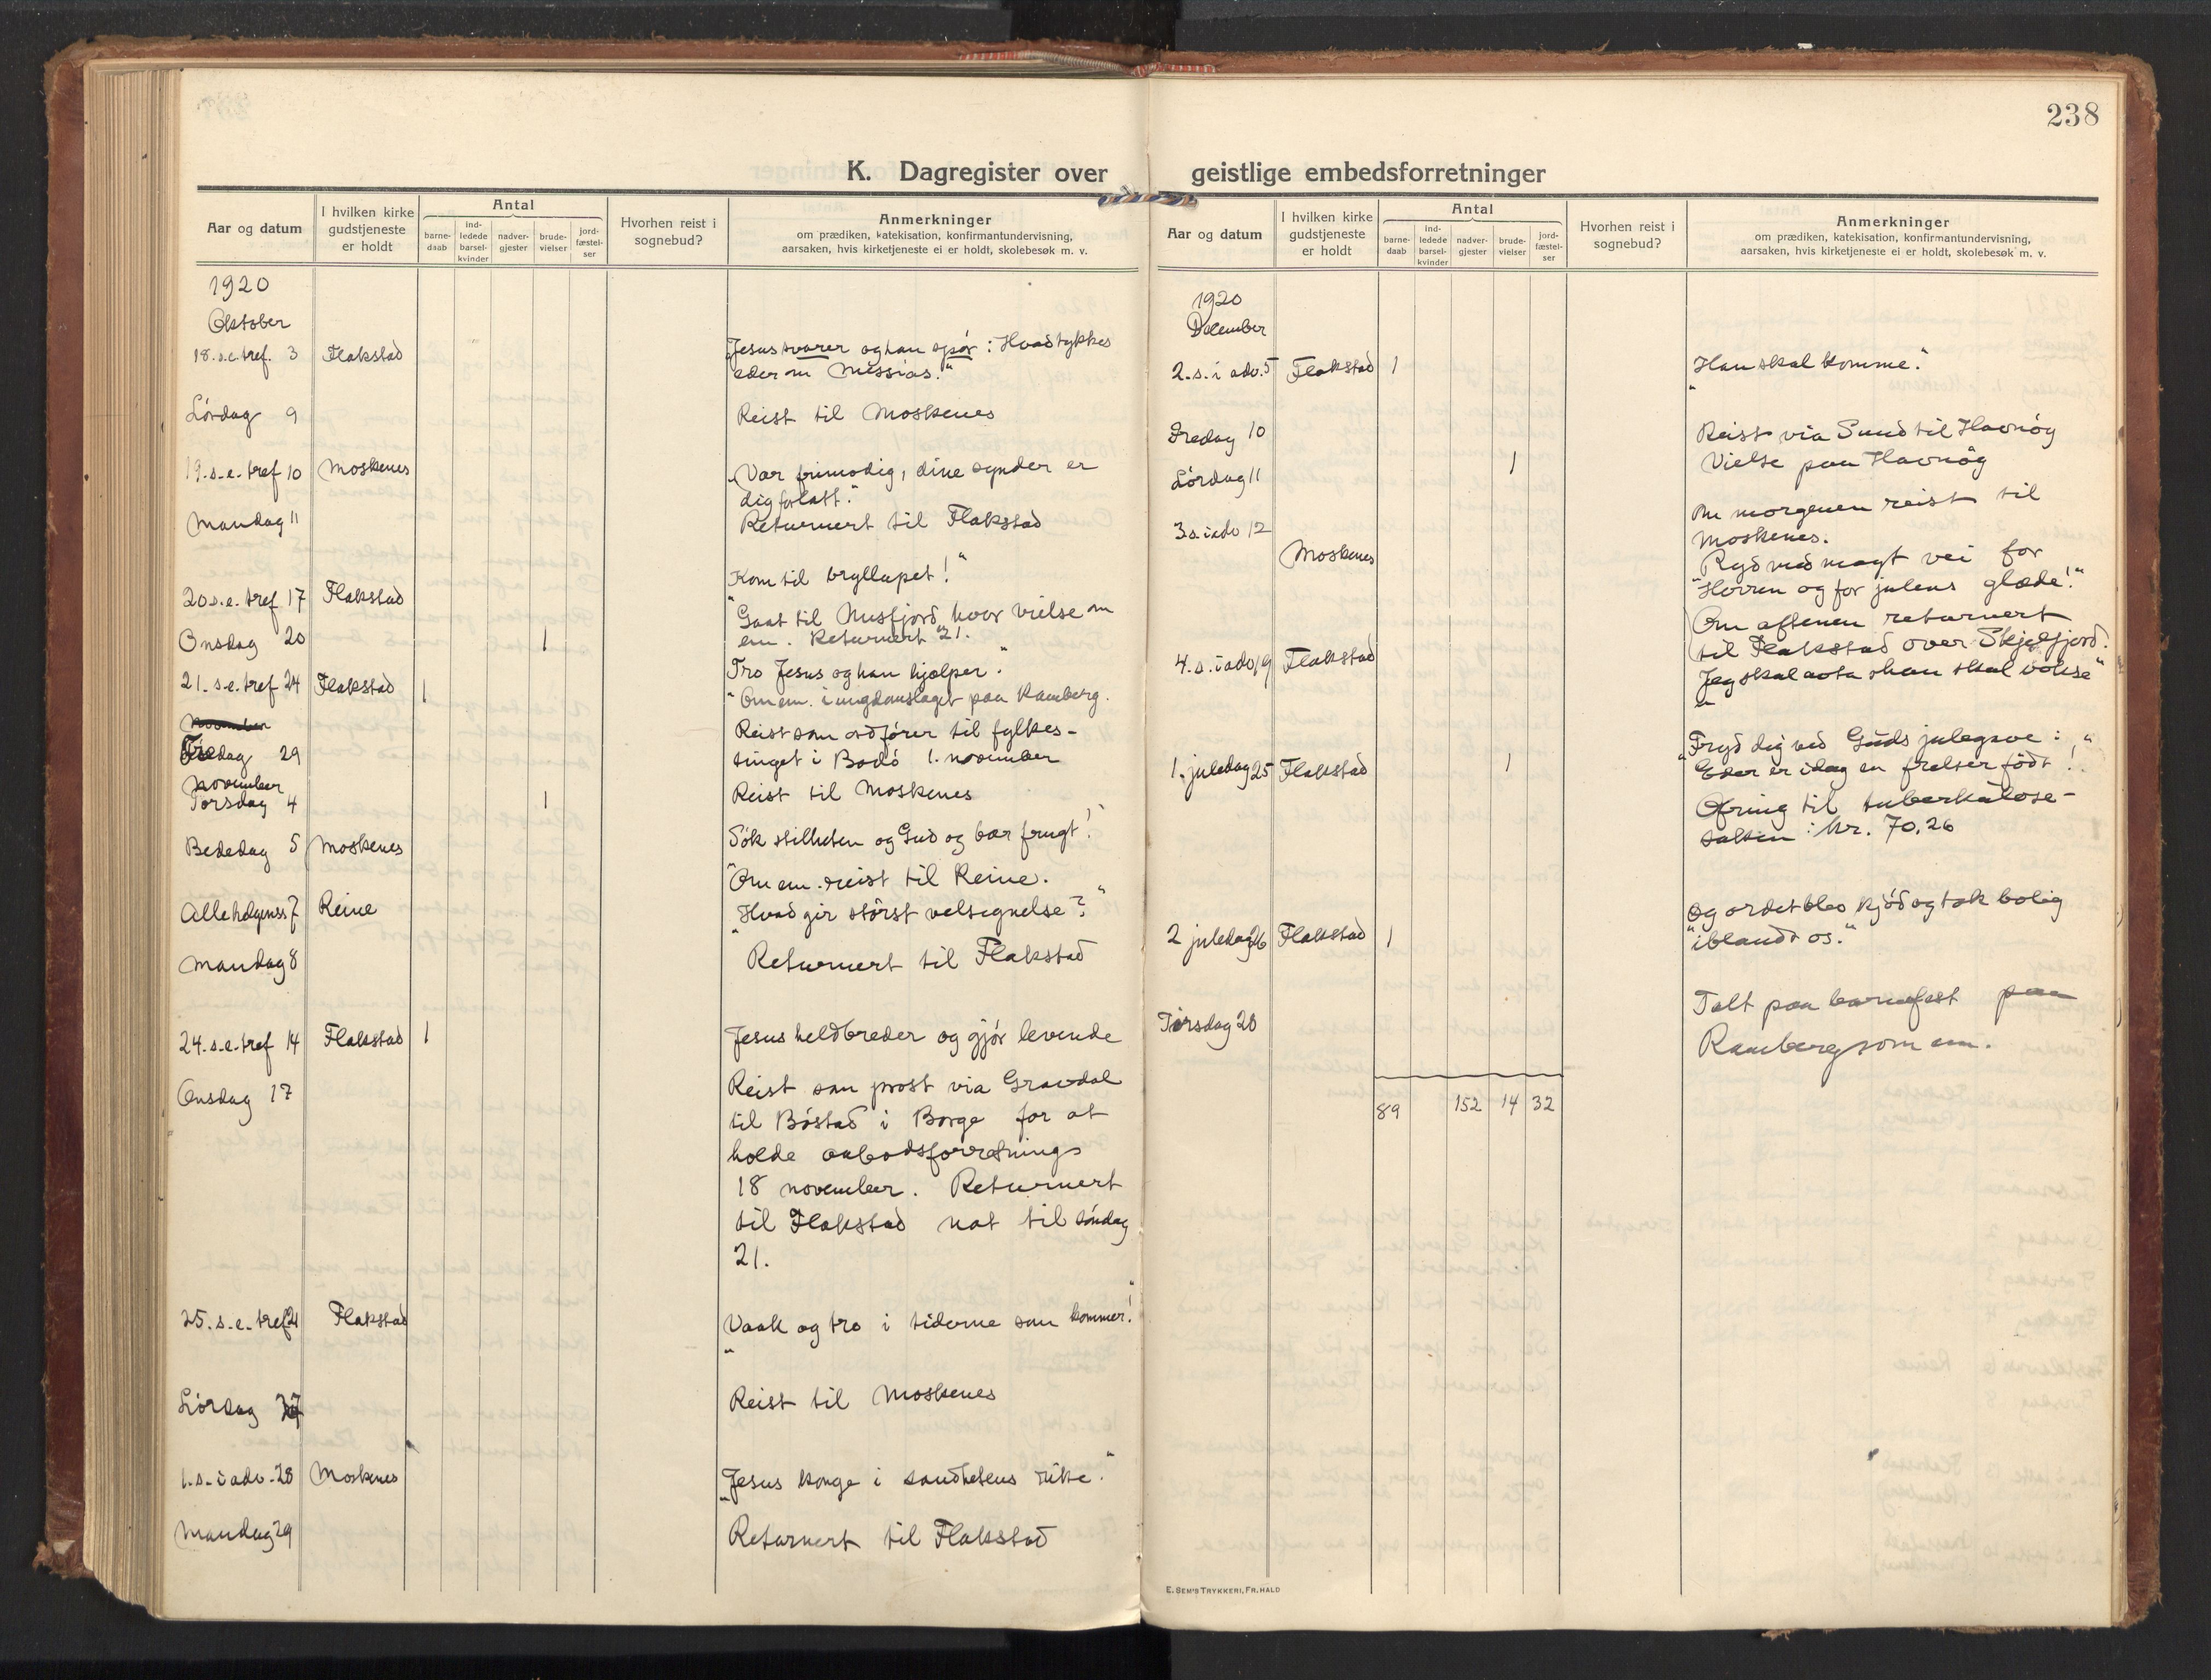 238
K. Dagregister over geistlige embedsforretninger
Aar og datum
I hvilken kirke
gudstjeneste
er holdt
Antal
barne-
daab
ind-
ledede
barsel-
kvinder
nadver-
gjester
brude-
vielser
jord-
fæstel-
ser
Hvorhen reist i
sognebud?
Anmerkninger
om prædiken, katekisation, konfirmantundervisning,
aarsaken, hvis kirketjeneste ei er holdt, skolebesøk m. v.
1920
Oktober
18. s.e. tref. 3 Flakstad
Jesus svarer og han spør: Hvad tykkes
eder om Messias."
Lørdag 9 Reist til Moskenes
19. s.e. tref 10 Moskenes "Vær frimodig, dine synder er
dig forlatt."
Mandag 11 Returnert til Flakstad
20 s.e. tref 17 Flakstad "Kom til bryllupet!"
Onsdag 20 1 Gaat til Nusfjord hvor vielse om
em. Returnert 21.
21. s.e. tref 24 Flakstad 1 "Tro Jesus og han hjælper."
Om em. i ungdomslaget paa Ramberg.
November
Fredag 29 Reist som ordfører til fylkes-
tinget i Bodø 1. november
November
Torsdag 4 1 Reist til Moskenes
Bededag 5 Moskenes "Søk stilheten og Gud og bær frugt!"
Om em. reist til Reine.
Allehelgenss 7 Reine "Hvad gir størst velsignelse?"
Mandag 8 Returnert til Flakstad
24. s.e. tref 14 Flakstad 1 Jesus helbreder og gjør levende
Onsdag 17 Reist som prost via Gravdal
til Bøstad i Borge for at
holde
18 november. Returnert
til Flakstad nat til søndag
21.
25. s.e. tref 21 Flakstad "Vaak og tro i tiderne som kommer!"
Lørdag 27 Reist til Moskenes
1. s. i adv. 28 Moskenes "Jesus konge i sandhetens rike."
Mandag 29 Returnert til Flakstad
Aar og datum
I hvilken kirke
gudstjeneste
er holdt
Antal
barne-
daab
ind-
ledede
barsel-
kvinder
nadver-
gjester
brude-
vielser
jord-
fæstel-
ser
Hvorhen reist i
sognebud?
Anmerkninger
om prædiken, katekisation, konfirmantundervisning,
aarsaken, hvis kirketjeneste ei er holdt, skolebesøk m. v.
1920
December
2. s. i adv. 5 Flakstad 1 "Han skal komme."
Fredag 10 Reist via Sund til Havnøg
Lørdag 11 1 Vielse paa Havnøg
3 s. i adv 12 Om morgenen reist til
Moskenes.
Moskenes "Ryd med magt vei for
Herren og for julens glæde!"
Om aftenen returnert
til Flakstad over Skjelfjord.
4. s. i adv 19 Flakstad "Jeg skal avta han skal vokse"
1. juledag 25 Flakstad 1 "Fryd dig ved Guds julegave:
Eder er idag en frelser født!"
Ofring til tuberkulose-
saken: kr. 70,26
2 juledag 26 Flakstad 1 "Og ordet blev kjød og tok bolig
iblandt os."
Tirsdag 28 Talt paa barnefest paa
Ramberg som em.
89 152 14 32
E. SEM'S TRYKKERI, FR. HALD